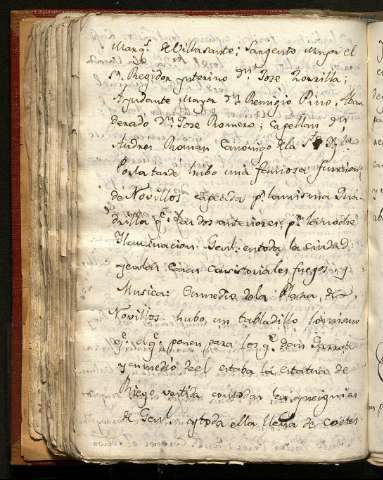 Marq.s de Villasante; Sargento Mayor el
S.r Regidor ynterino d.n Jose Zorrilla;
Ayudante Mayor d.n Remigio Pino; Aban
derado d.n Jose Romero; Capellan d.n
Andres Roman Canonigo de la
Por la tarde hubo una funcion
de Novillos p.r la misma Qua
drilla q.e las dos anteriores p.r la noche
Yluminacion Genl. en toda la ciudad
y en las Casas Consistoriales fuegos y
Musica: En medio de la Plaza de
Novillos hubo un tabladillo lo mismo
q.e el q.e ponen para los q.e
y en medio de el estaba la estatua de
Riego vestida con todas las ynsignias
de Genl. y toda ella llena de coetes